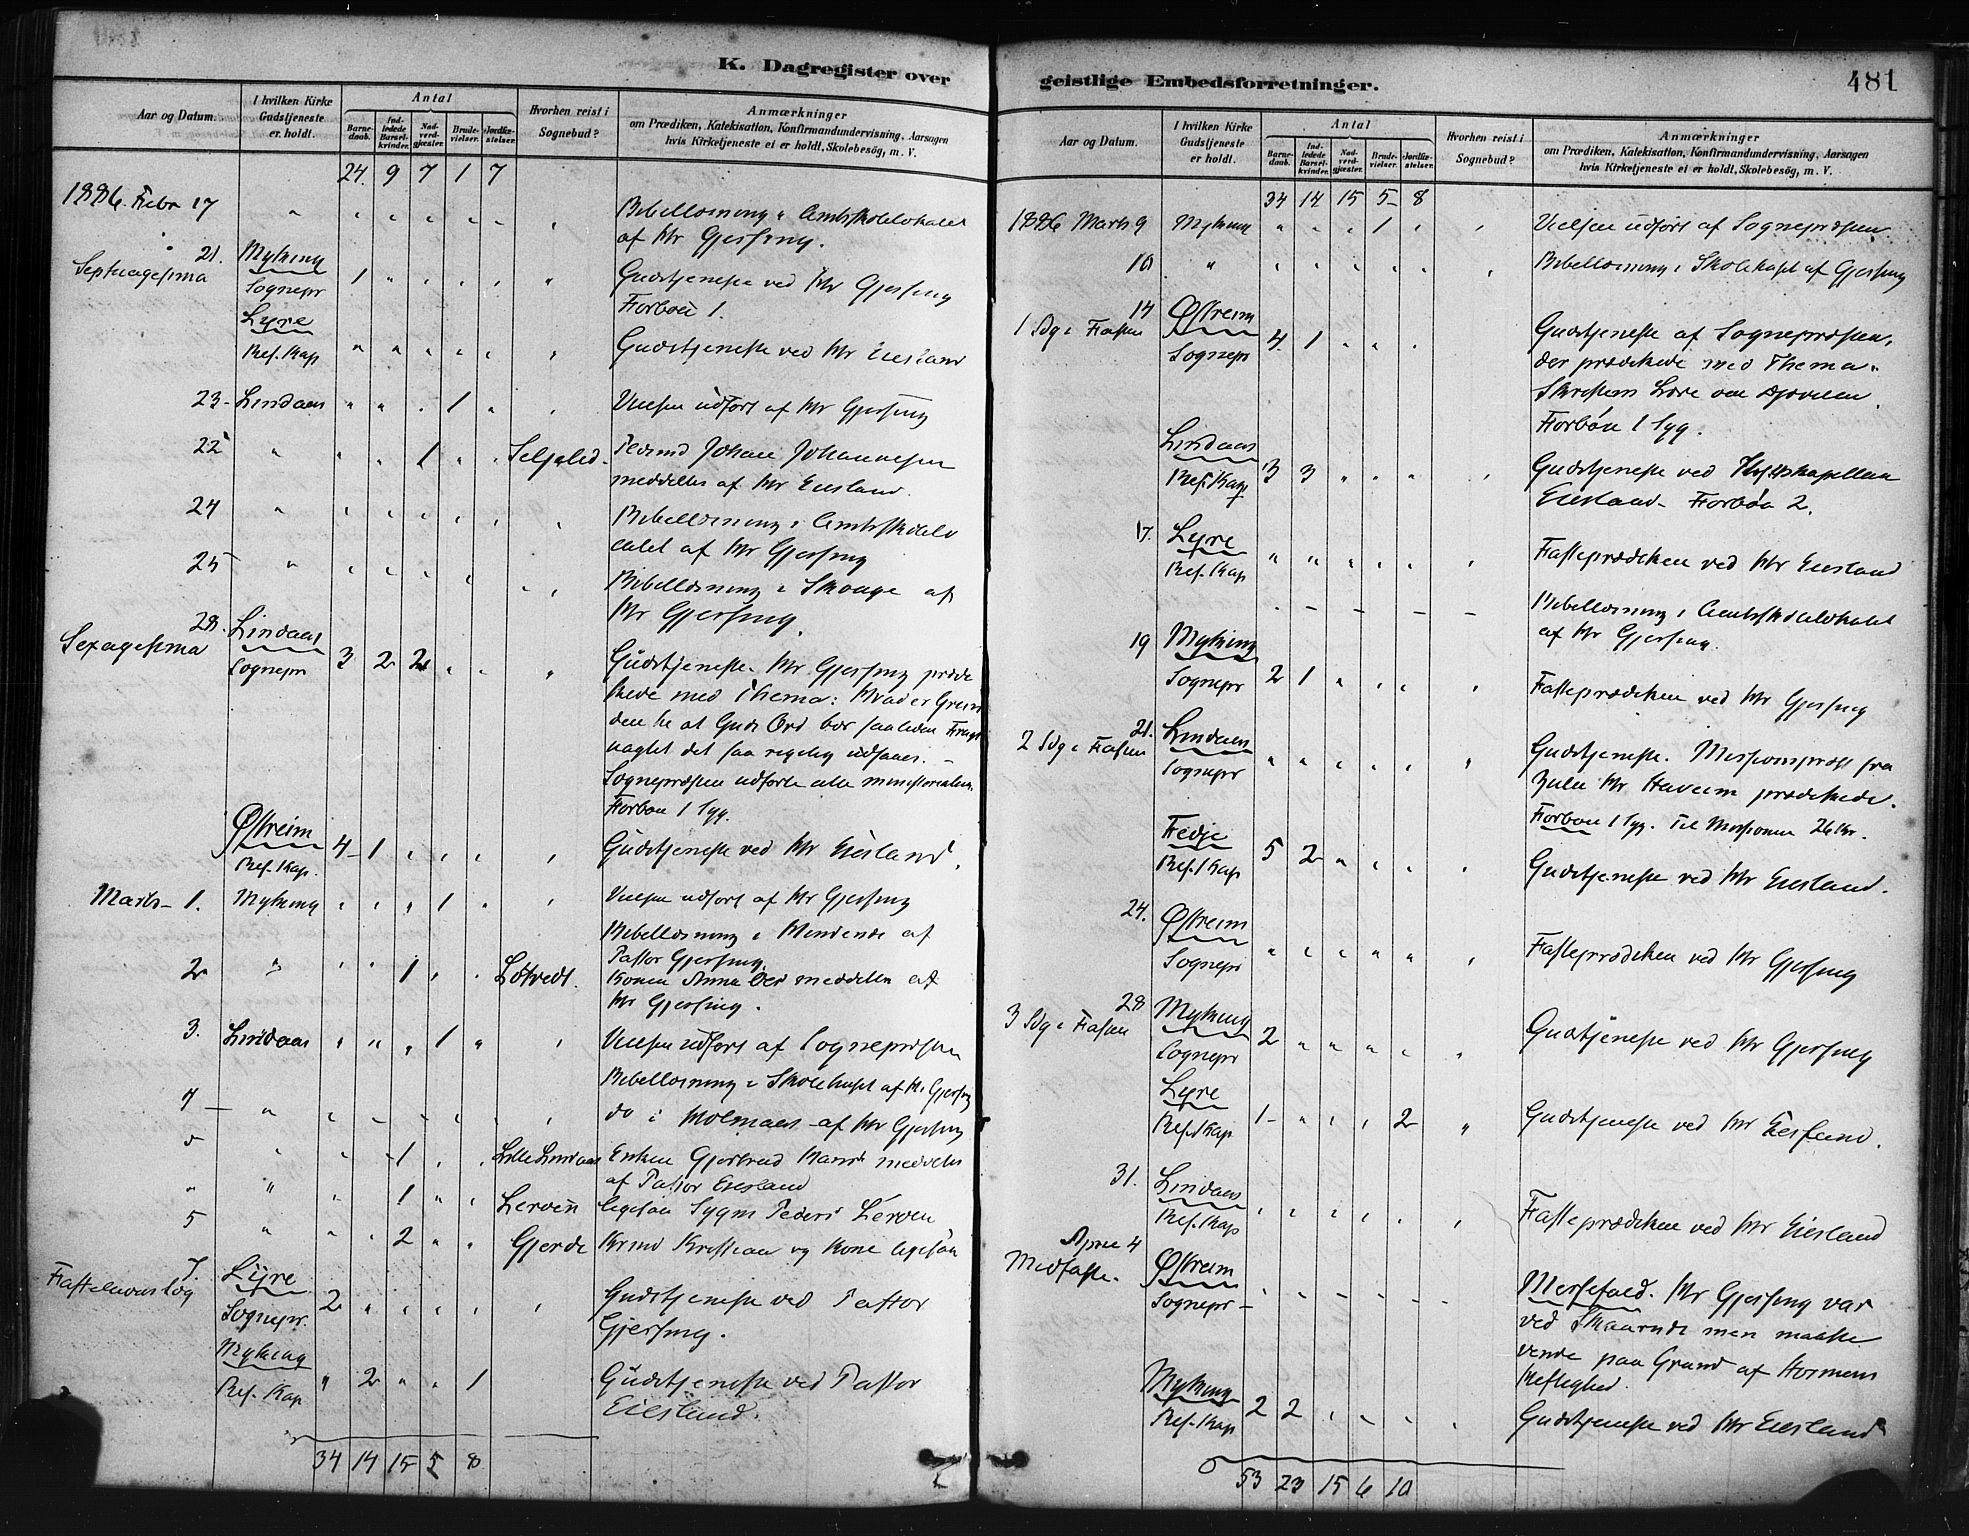 K. Dagregister over
Aar og Datum.
I hvilken Kirke
Gudstjeneste
er holdt.
Antal
Barne-
daab.
Ind-
ledede
Barsel-
kvinder.
Nad-
verd-
gjæster.
Brude-
vielser.
Jordfæ-
stelser.
Hvorhen reist i
Sognebud?
Anmærkninger
om Prædiken, Katekisation, Konfirmandundervisning, Aarsagen
hvis Kirketjeneste ei er holdt, Skolebesøg, m. V.
24. 9 7 1 7
1886. Febr 17 Bibellæsning i Amtsskolelokalet
af Hr Gjessing.
21. Myking
Septuagesima Sognepr 1 Gudstjeneste ved Hr Gjessing
Forbøn 1.
Lyre
Res. Kap Gudstjeneste ved Hr Eiesland
23 - Lindaas 1 Vielsen udført af Hr Gjessing
22 1 Johan Johannesen
meddelt af Hr Eiesland.
24 Bibellæsning i Amtsskolelo
calet af Hr Gjessing
25 Bibellæsning i Skauge af
Hr Gjessing.
28. Lindaas
Sexagesima Sognepr 3 2 2 Gudstjeneste. Hr Gjessing præde
kede med Thema: Hvad er Grun
den til at Guds Ord bær saa liden Frugt
uagtet det saa rigelig udsaaes. -
Sognepræsten udførte alle ministerialia.
Forbøn 1 Syg.
Østreim
Res. Kap. 4 1 Gudstjeneste ved Hr Eiesland.
Marts - 1. Myking 1 Vielsen udført af Hr Gjessing
Bibellæsning i af
Pastor Gjessing.
2 1 Løtvedt. Konen Anna meddelt af
Hr Gjessing.
3. Lindaas 1 Vielsen udført af Sognepræsten
Bibellæsning i Skolehuset af Hr Gjessing
4 - do i Molmaas - af Hr Gjessing
5 1 Lille Lindaas Enken Gjertrud meddelt
af Pastor Eiesland
1 Lerven ligesaa Sygm Peder Lerven
5 2 Gjerde Kristian og Kone ligesaa
7. Lyre
Fastelavns Sdg Sognepr. 2 Gudstjeneste ved Pastor
Gjessing.
Myking
Res. Kap 2 1 Gudstjeneste ved Pastor
Eiesland.
34 14 15 5 8
geistlige Embedsforretninger.
481
Aar og Datum.
I hvilken Kirke
Gudstjeneste
er holdt.
Antal
Barne-
daab.
Ind-
ledede
Barsel-
kvinder.
Nad-
verd-
gjæster.
Brude-
vielser.
Jordfæ-
stelser.
Hvorhen reist i
Sognebud?
Anmærkninger
om Prædiken, Katekisation, Konfirmandundervisning, Aarsagen
hvis Kirketjeneste ei er holdt, Skolebesøg, m. V.
34 14 15 5 8
1886 Marts 9 Myking 1 Vielsen udført af Sognepræsten
10 Bibellæsning i Skolehuset af Gjessing
14 Østreim
1 Sdg i Fasten Sognepr 4. 1 Gudstjeneste af Sognepræsten,
der prædikede med Thema:
Skriftens Lære om Djævelen.
Forbøn 1 Syg.
Lindaas
Res. Kap 3 3 Gudstjeneste ved
Eiesland - Forbøn 2.
17. Lyre
Res. Kap Fasteprædiken ved Hr Eiesland
Bibellæsning i Amtsskolelokalet
af Hr Gjessing.
19 Myking
Sognepr 2 1 Fasteprædiken ved Hr Gjessing
21. Lindaas
2 Sdg i Fasten Sognepr Gudstjeneste. Missionspræst fra
Zulu Hr prædikede.
Forbøn 1 Syg. Til Missionen 26 Kr.
Fedje
Res. Kap 5 2 Gudstjeneste ved Hr Eiesland.
24. Østreim
Sognepr Fasteprædiken ved Hr Gjessing
28 Myking
3 Sdg i Fasten Sognepr 2 Gudstjeneste ved Hr Gjessing
Lyre
Res. Kap 1 2 Gudstjeneste ved Hr Eiesland.
31. Lindaas
Res. Kap Fasteprædiken ved Hr Eiesland
April 4 Østreim
Midfaste. Sognepr Messefald. Hr Gjessing var
ved Skaarnde men maatte
vende paa Grund af Stormens
Heftighed.
Myking
Res. Kap 2 2 Gudstjeneste ved Hr Eiesland
53 23 15 6 10